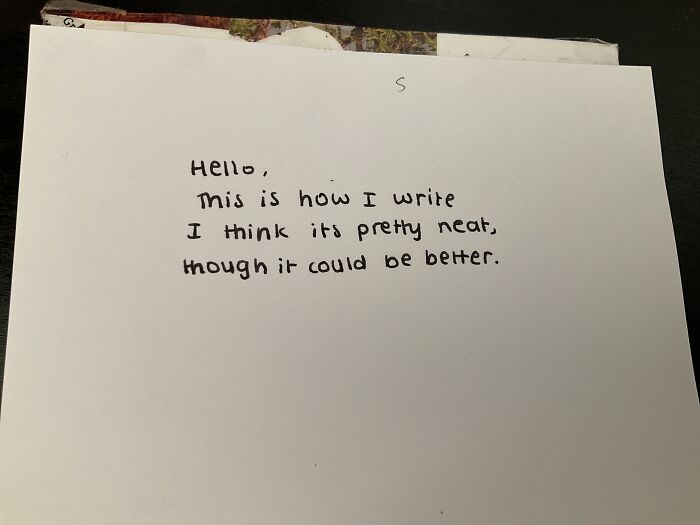 S
Hello,
This is how I write
I think its pretty neat,
though it could be better.